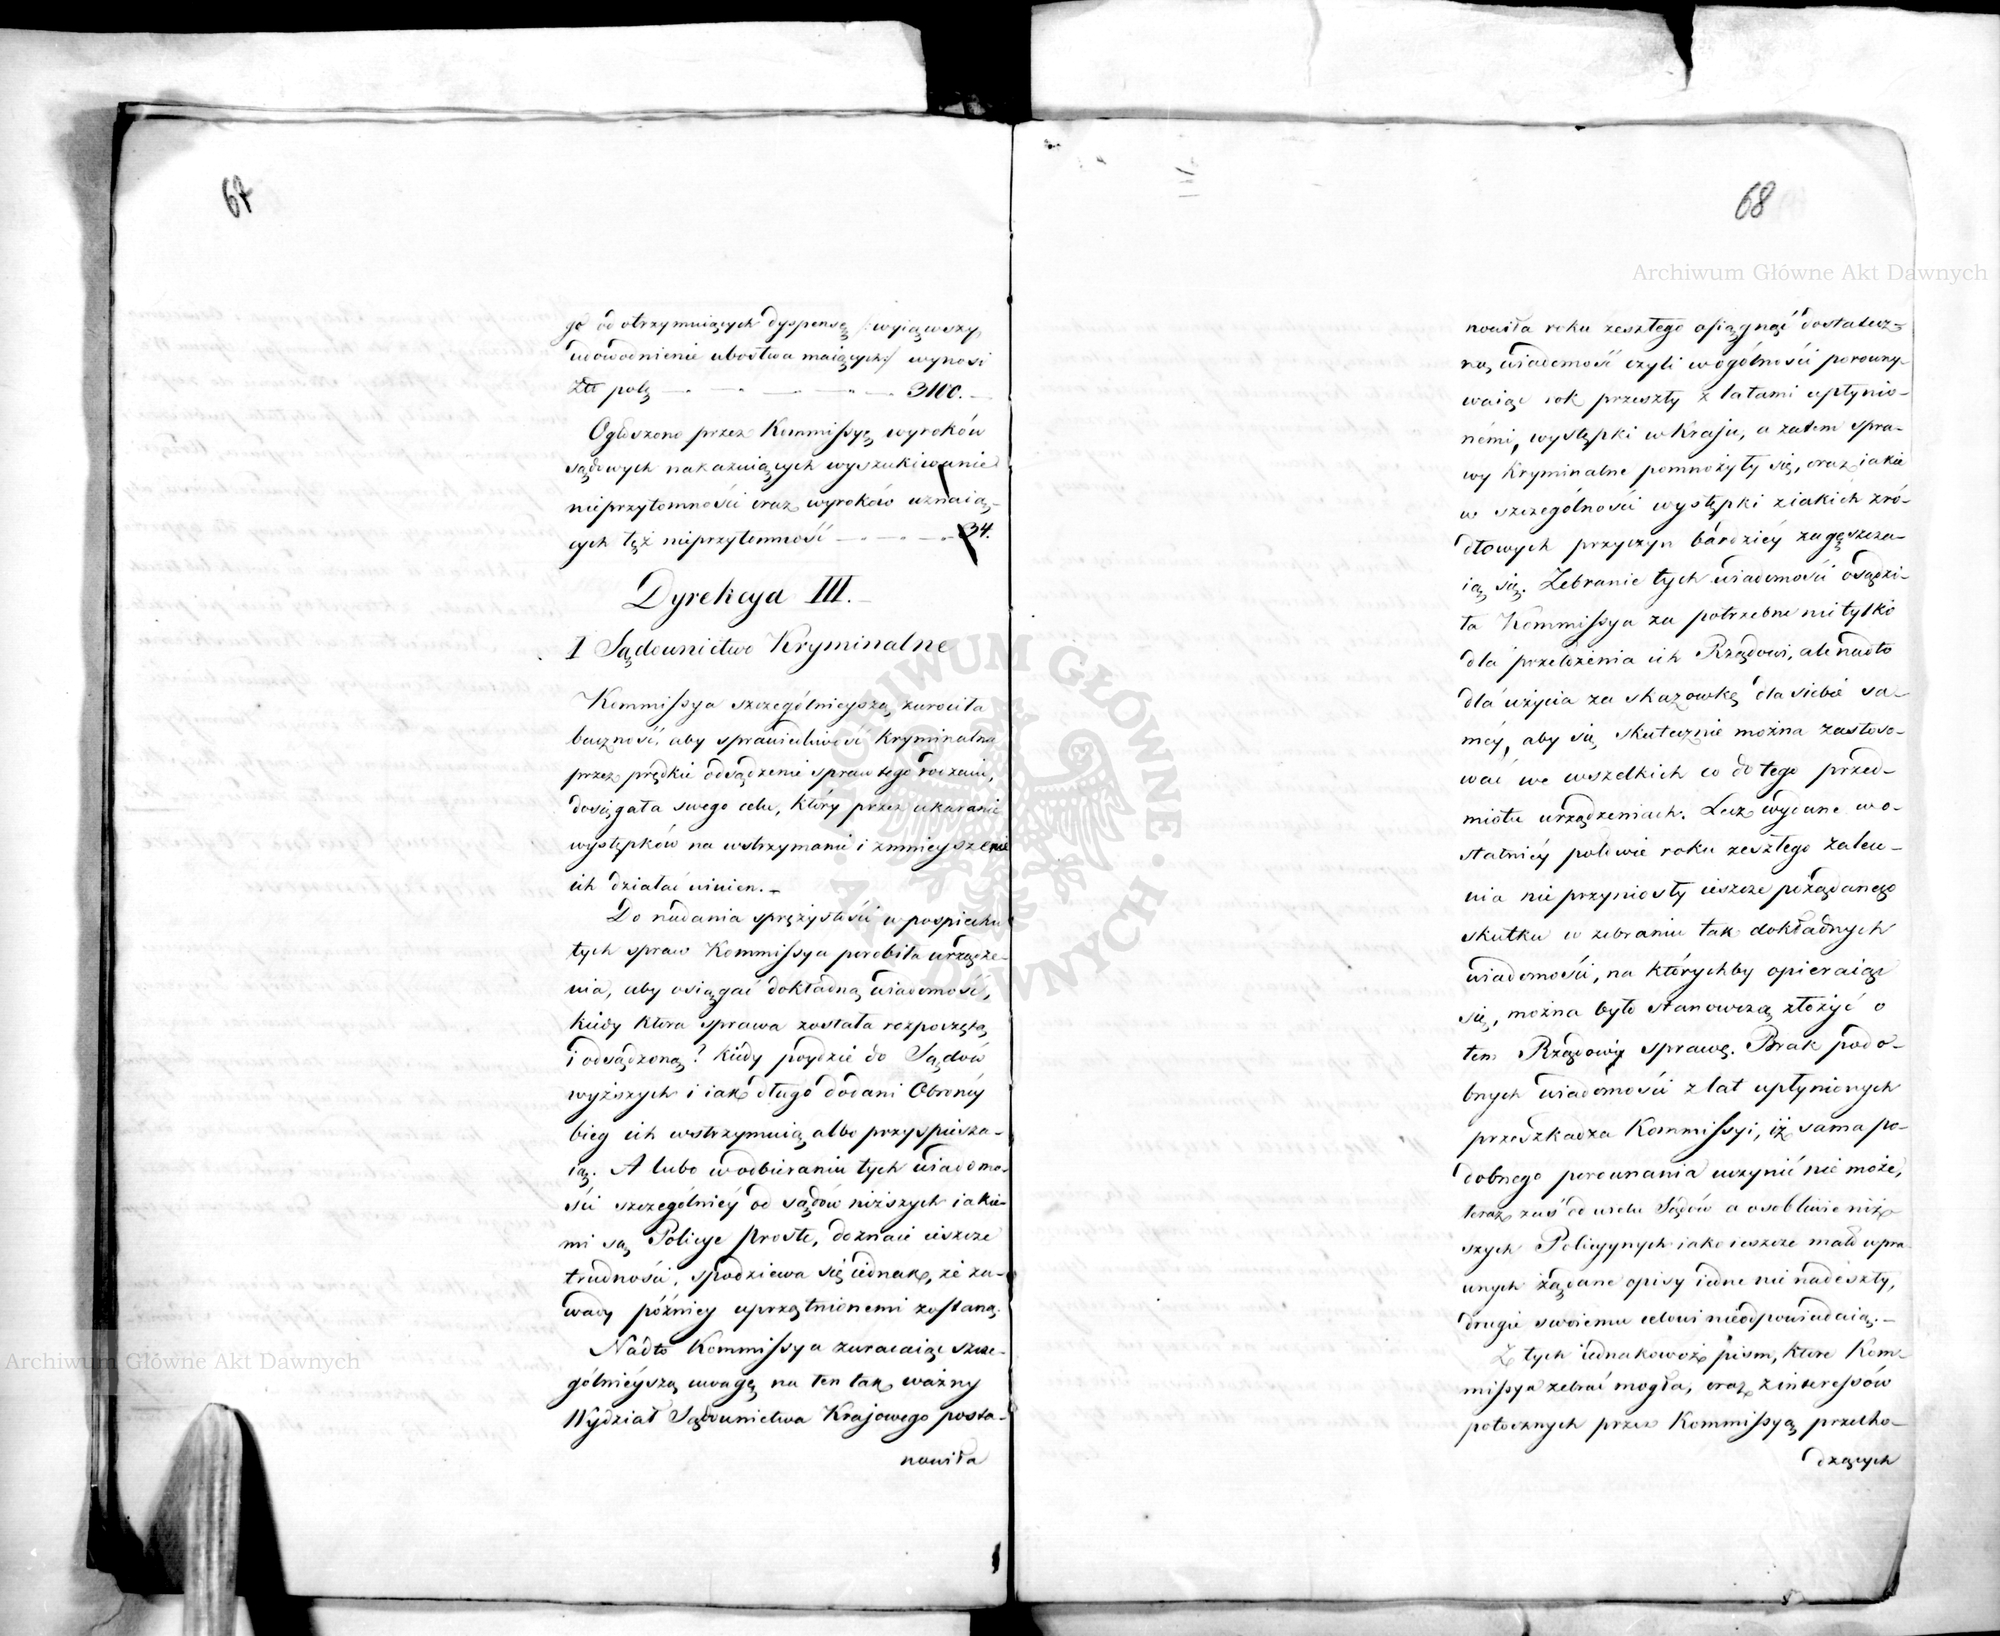 67
go od otrzymuiących dyspensę /:wyiąwszy
udowodnienie ubostwa maiących:/ wynosi
Złł polz — — — — 3100. —
Ogłoszono przez Kommissyę wyroków
sądowych nakazuiących wyszukiwanie
nieprzytomności oraz wyroków uznaią-
cych tęż nieprzytomność — — — 34.
Dyrekcya III. —
I Sądownictwo Kryminalne
Kommissya szczególnieyszą zwrociła
baczność, aby sprawiedliwość kryminalna
przez prędkie odsądzenie spraw tego rodzaiu,
dosięgała swego celu, który przez ukaranie
występków na wstrzymanie i zmnieyszenie
ich działać winien. —
Do nadania sprężystości w pospiechu
tych spraw Kommissya porobiła urządze-
nia, aby osiągać dokładną wiadomość,
kiedy która sprawa została rozpoczętą
i odsądzoną? kiedy poydzie do Sądów
wyższych i iak długo dodani Obrońcy
bieg ich wstrzymuią albo przyspiesza-
ią. A lubo w odbieraniu tych wiadomo-
ści szczególniéy od sądów niższych iakie-
mi są Policye proste, doznaie ieszcze
trudności, spodziewa się iednak, że za-
wady późniey uprzątnionemi zostaną.
Nadto Kommissya zwracaiąc szcze-
gólnieyszą uwagę na ten tak ważny
Wydział Sądownictwa Krajowego posta-
nowiła
68
nowiła roku zeszłego osiągnąć dostatecz-
ną wiadomość czyli w ogólności porowny-
waiąc rok przeszły z latami upłynio-
némi, występki w Kraju, a zatem spra-
wy Kryminalne pomnożyły się, oraz iakie
w szczególności występki z iakich zró-
dłowych przyczyn bardziéy zagęszcza-
ią się. Zebranie tych wiadomości osądzi-
ła Kommissya za potrzebne nie tylko
dla przełożenia ich Rządowi, ale nadto
dla użycia za skazowkę dla siebie sa-
méy, aby się skutecznie można zastoso-
wać we wszelkich co do tego przed-
miotu urządzeniach. Lecz wydane w o-
statniéy połowie roku zeszłego zalece-
nia nie przyniosły ieszcze pożądanego
skutku w zebraniu tak dokładnych
wiadomości, na którychby opieraiąc
się, można było stanowczą złożyć o
tem Rządowi sprawę. Brak podo-
bnych wiadomości z lat upłynionych
przeszkadza Kommissyi, iż sama po-
dobnego porownania uczynić nie może,
teraz zaś od wielu Sądów a osobliwie niż-
szych Policyynych iako ieszcze mało wpra-
wnych żądane opisy iedne nie nadeszły,
drugie swoiemu celowi nieodpowiadaią. —
Z tych iednakowoż pism, które Kom-
missya zebrać mogła, oraz z interessów
potocznych przez Kommissyą przecho-
dzących
Archiwum Główne Akt Dawnych
Archiwum Główne Akt Dawnych
ARCHIWUM GŁÓWNE · AKT DAWNYCH ·